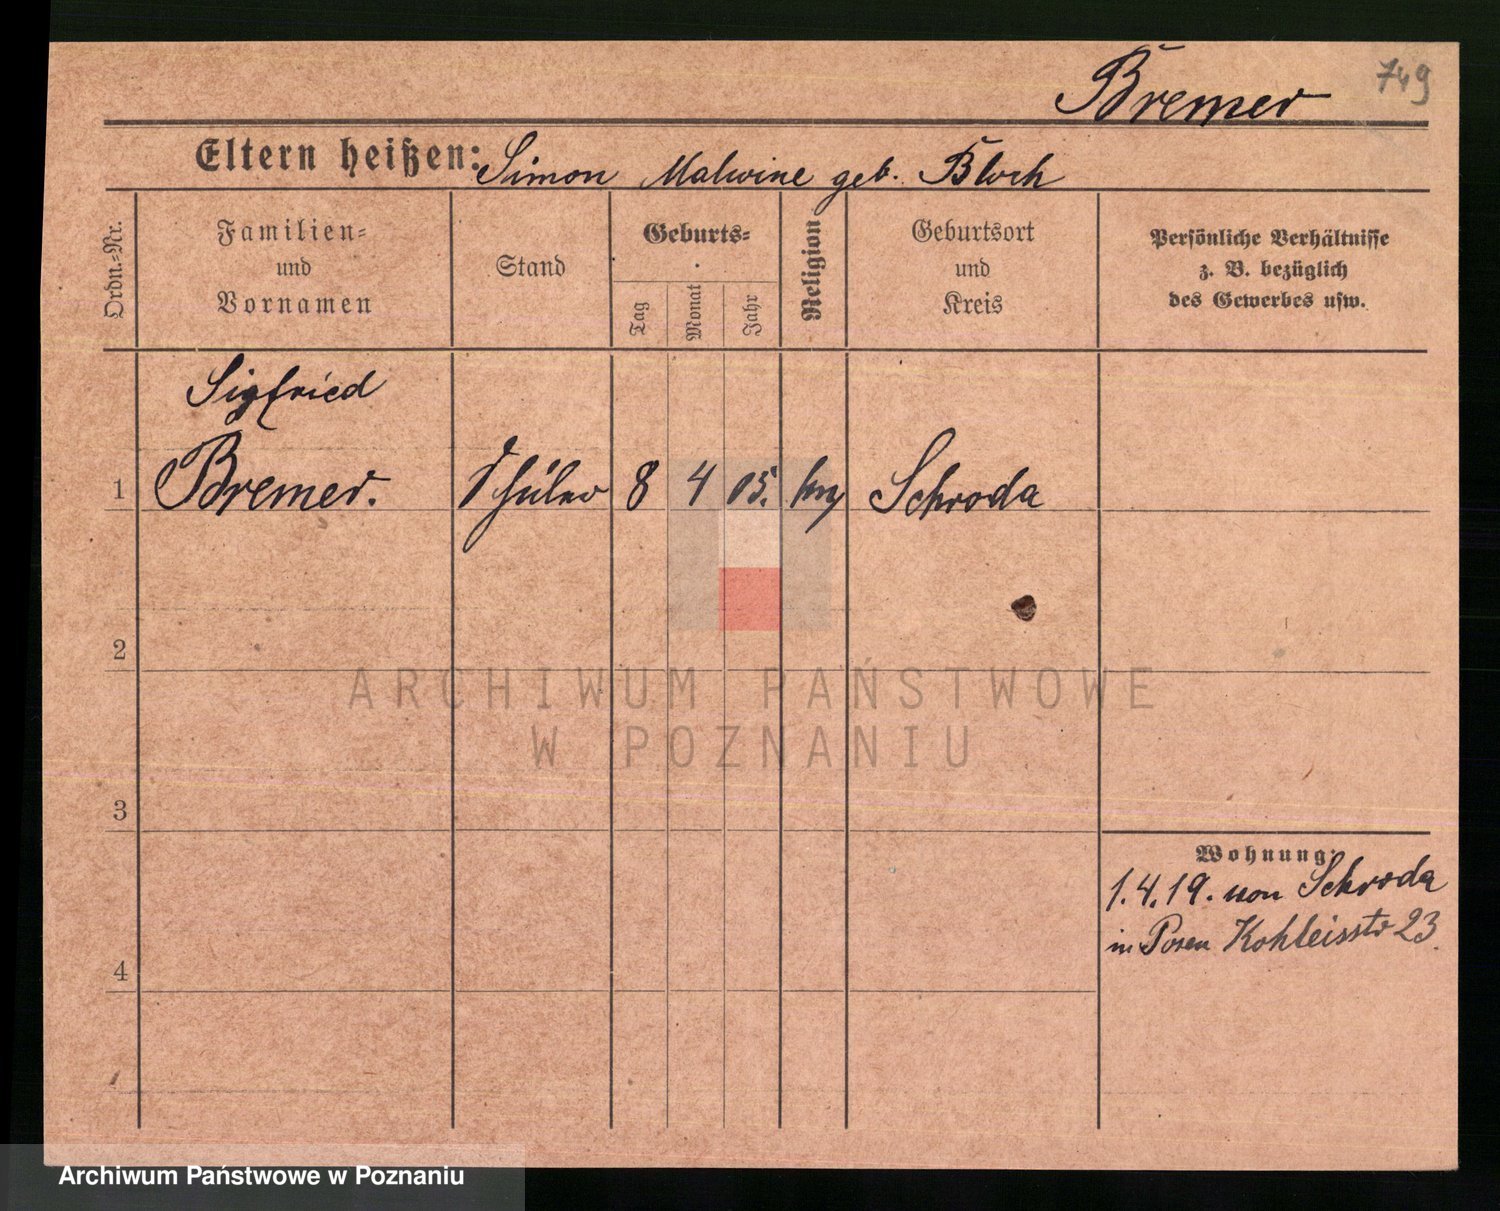 Bremer 749
Eltern heißen: Simon Malwine geb. Bloch
Ordn.-Nr.
Familien-
und
Vornamen
Stand
Geburts-
Tag
Monat
Jahr
Religion
Geburtsort
und
Kreis
Persönliche Verhältnisse
z. B. bezüglich
des Gewerbes usw.
Sigfried
1 Bremer. Schüler 8 4 05. Schroda
2
3
4
Wohnung:
1.4.19. von Schroda
in Posen Kohleisstr 23.
ARCHIWUM PAŃSTWOWE
W POZNANIU
Archiwum Państwowe w Poznaniu